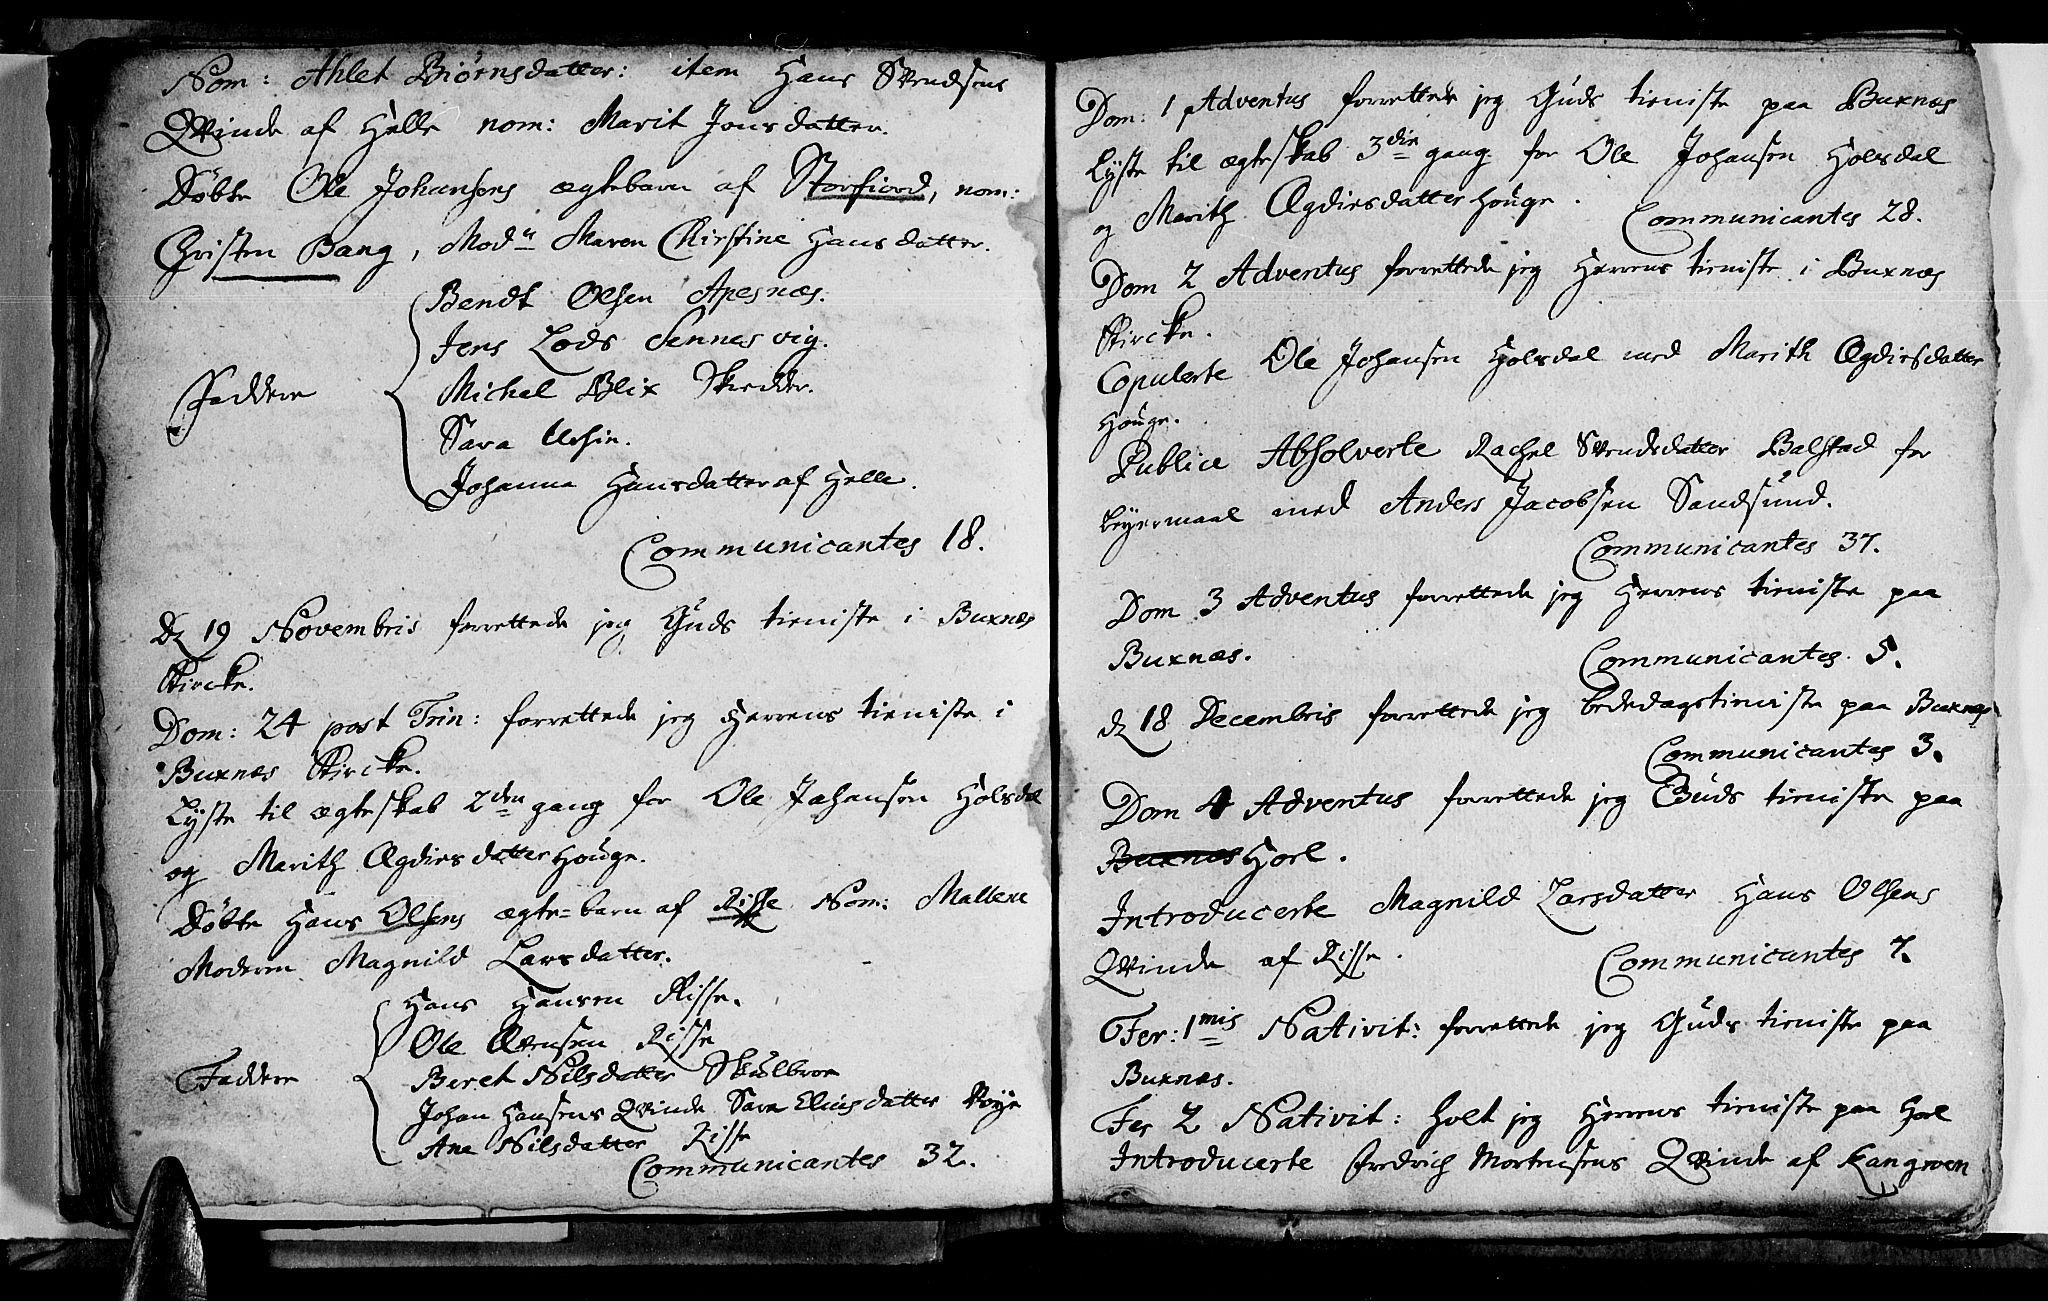 Nom: Ahlet Biørnsdatter: item Hans Svendsens
Qvinde af Helle nom: Marit Jonsdatter.
Døbte Ole Johansens ægtebarn af Storfiord, nom:
Christen Bang, Mod: Maren Chirstine Hansdatter.
Bendt Olsen Apesnæs.
Jens Lods Sennesvig.
Faddere Michel Blix Skredder.
Sara Ursin.
Johanna Hansdatter af Helle.
Communicantes 18.
D 19 Novembris forrettede jeg Guds tieniste i Buxnæs
Kircke.
Dom: 24 post Trin: forrettede jeg Herrens tieniste i
Buxnæs Kircke.
Lyste til ægteskab 2den gang for Ole Johansen Holsdal
og Marith Ægdiesdatter Houge.
Døbte Hans Olsens ægte-barn af Risse Nom: Mallene
Moderen Magnild Larsdatter.
Hans Hansen Risse.
Ole Hansen Risse
Faddere Beret Nilsdatter Skulbroe
Johan Hansens Qvinde Sara Eliasdatter
Ane Nilsdatter Risse
Communicantes 32.
Dom: 1 Adventus forrettede jeg Guds tieniste paa Buxnæs
Lyste til ægteskab 3die gang for Ole Johansen Holsdal
og Marith Ægdiesdatter Houge.
Communicantes 28.
Dom 2 Adventus forrettede jeg Herrens tieniste i Buxnæs
Kircke.
Copulerte Ole Johansen Holsdal med Marith Ægdiesdatter
Houge.
Publice Absolverte Rachel Svendsdatter Balstad for
Leyermaal med Anders Jacobsen Sandsund.
Communicantes 37.
Dom 3 Adventus forrettede jeg Herrens tieniste paa
Buxnæs.
Communicantes 5.
d 18 Decembris forrettede jeg bededagstieniste paa Buxnæs
Communicantes 3.
Dom 4 Adventus forrettede jeg Guds tieniste paa
Buxnæs Horl.
Introducerte Magnild Larsdatter Hans Olsens
Qvinde af Risse.
Communicantes 7.
Fer: 1mis Nativit: forrettede jeg Guds tieniste paa
Buxnæs.
Fer 2 Nativit: holt jeg Herrens tieniste paa Horl
Introducerte Fredrich Mortensens Qvinde af